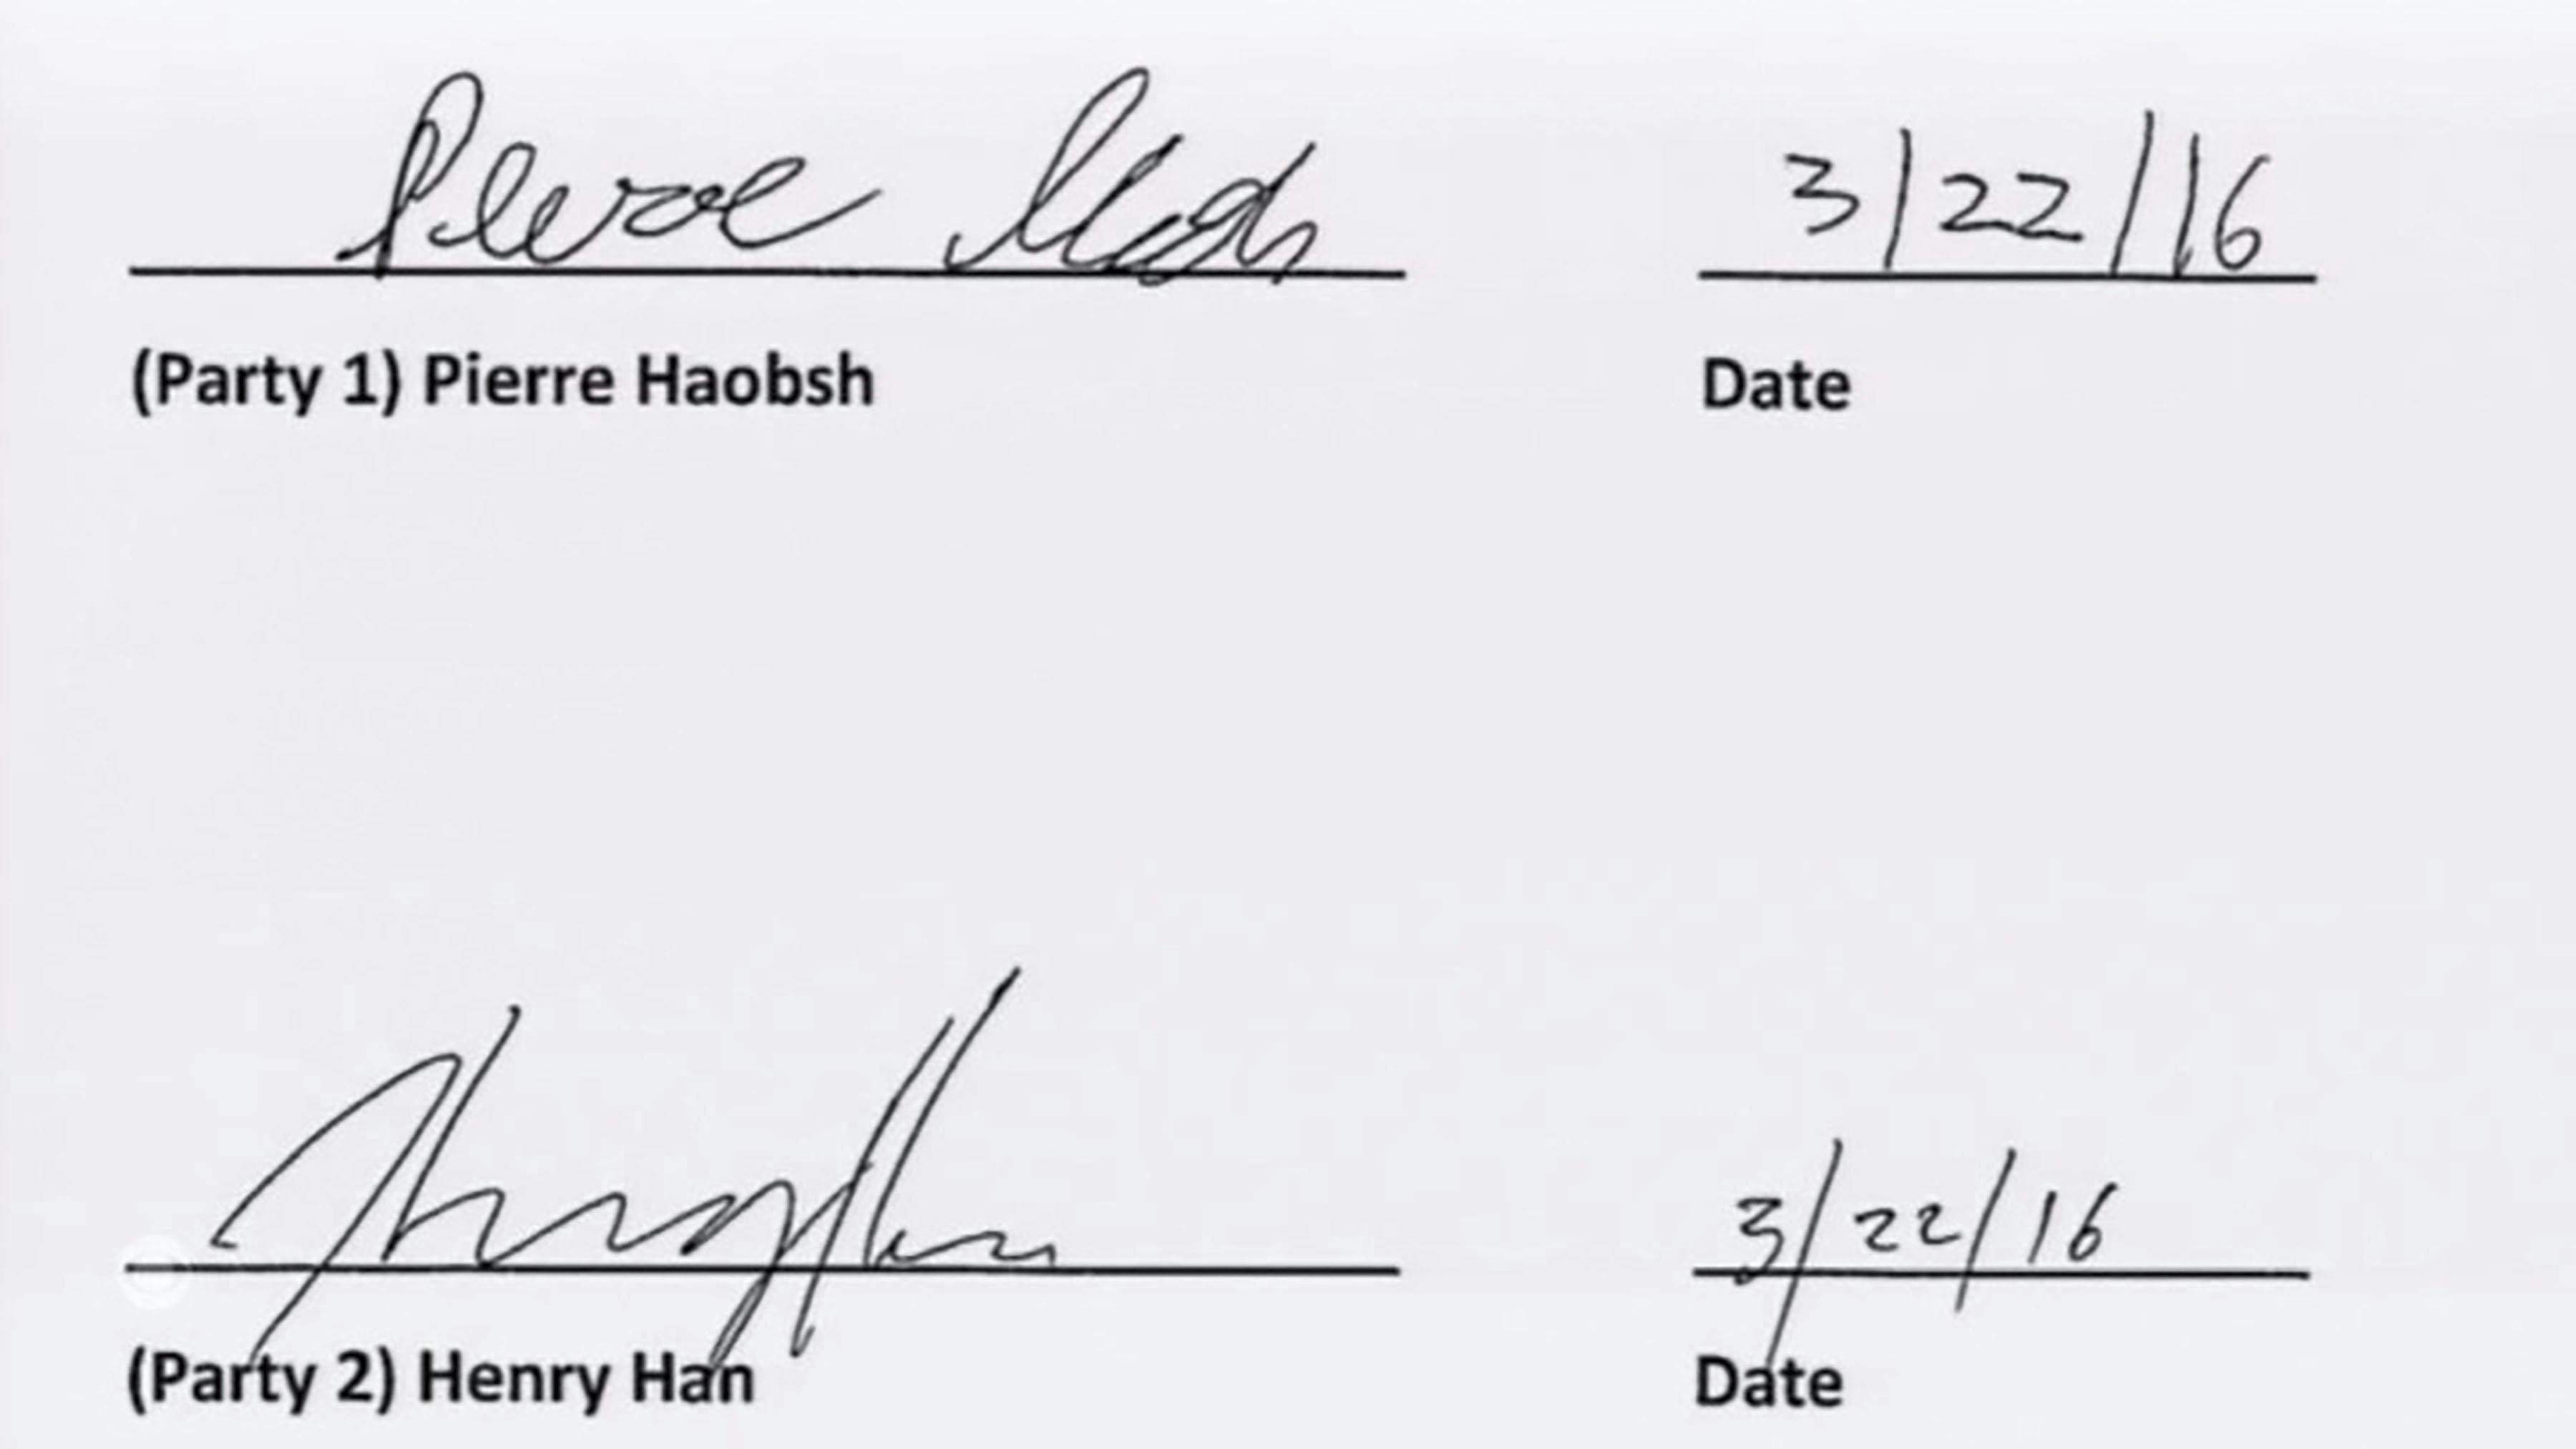 Pierre Haobsh 3/22/16
(Party 1) Pierre Haobsh Date
Henry Han 3/22/16
(Party 2) Henry Han Date